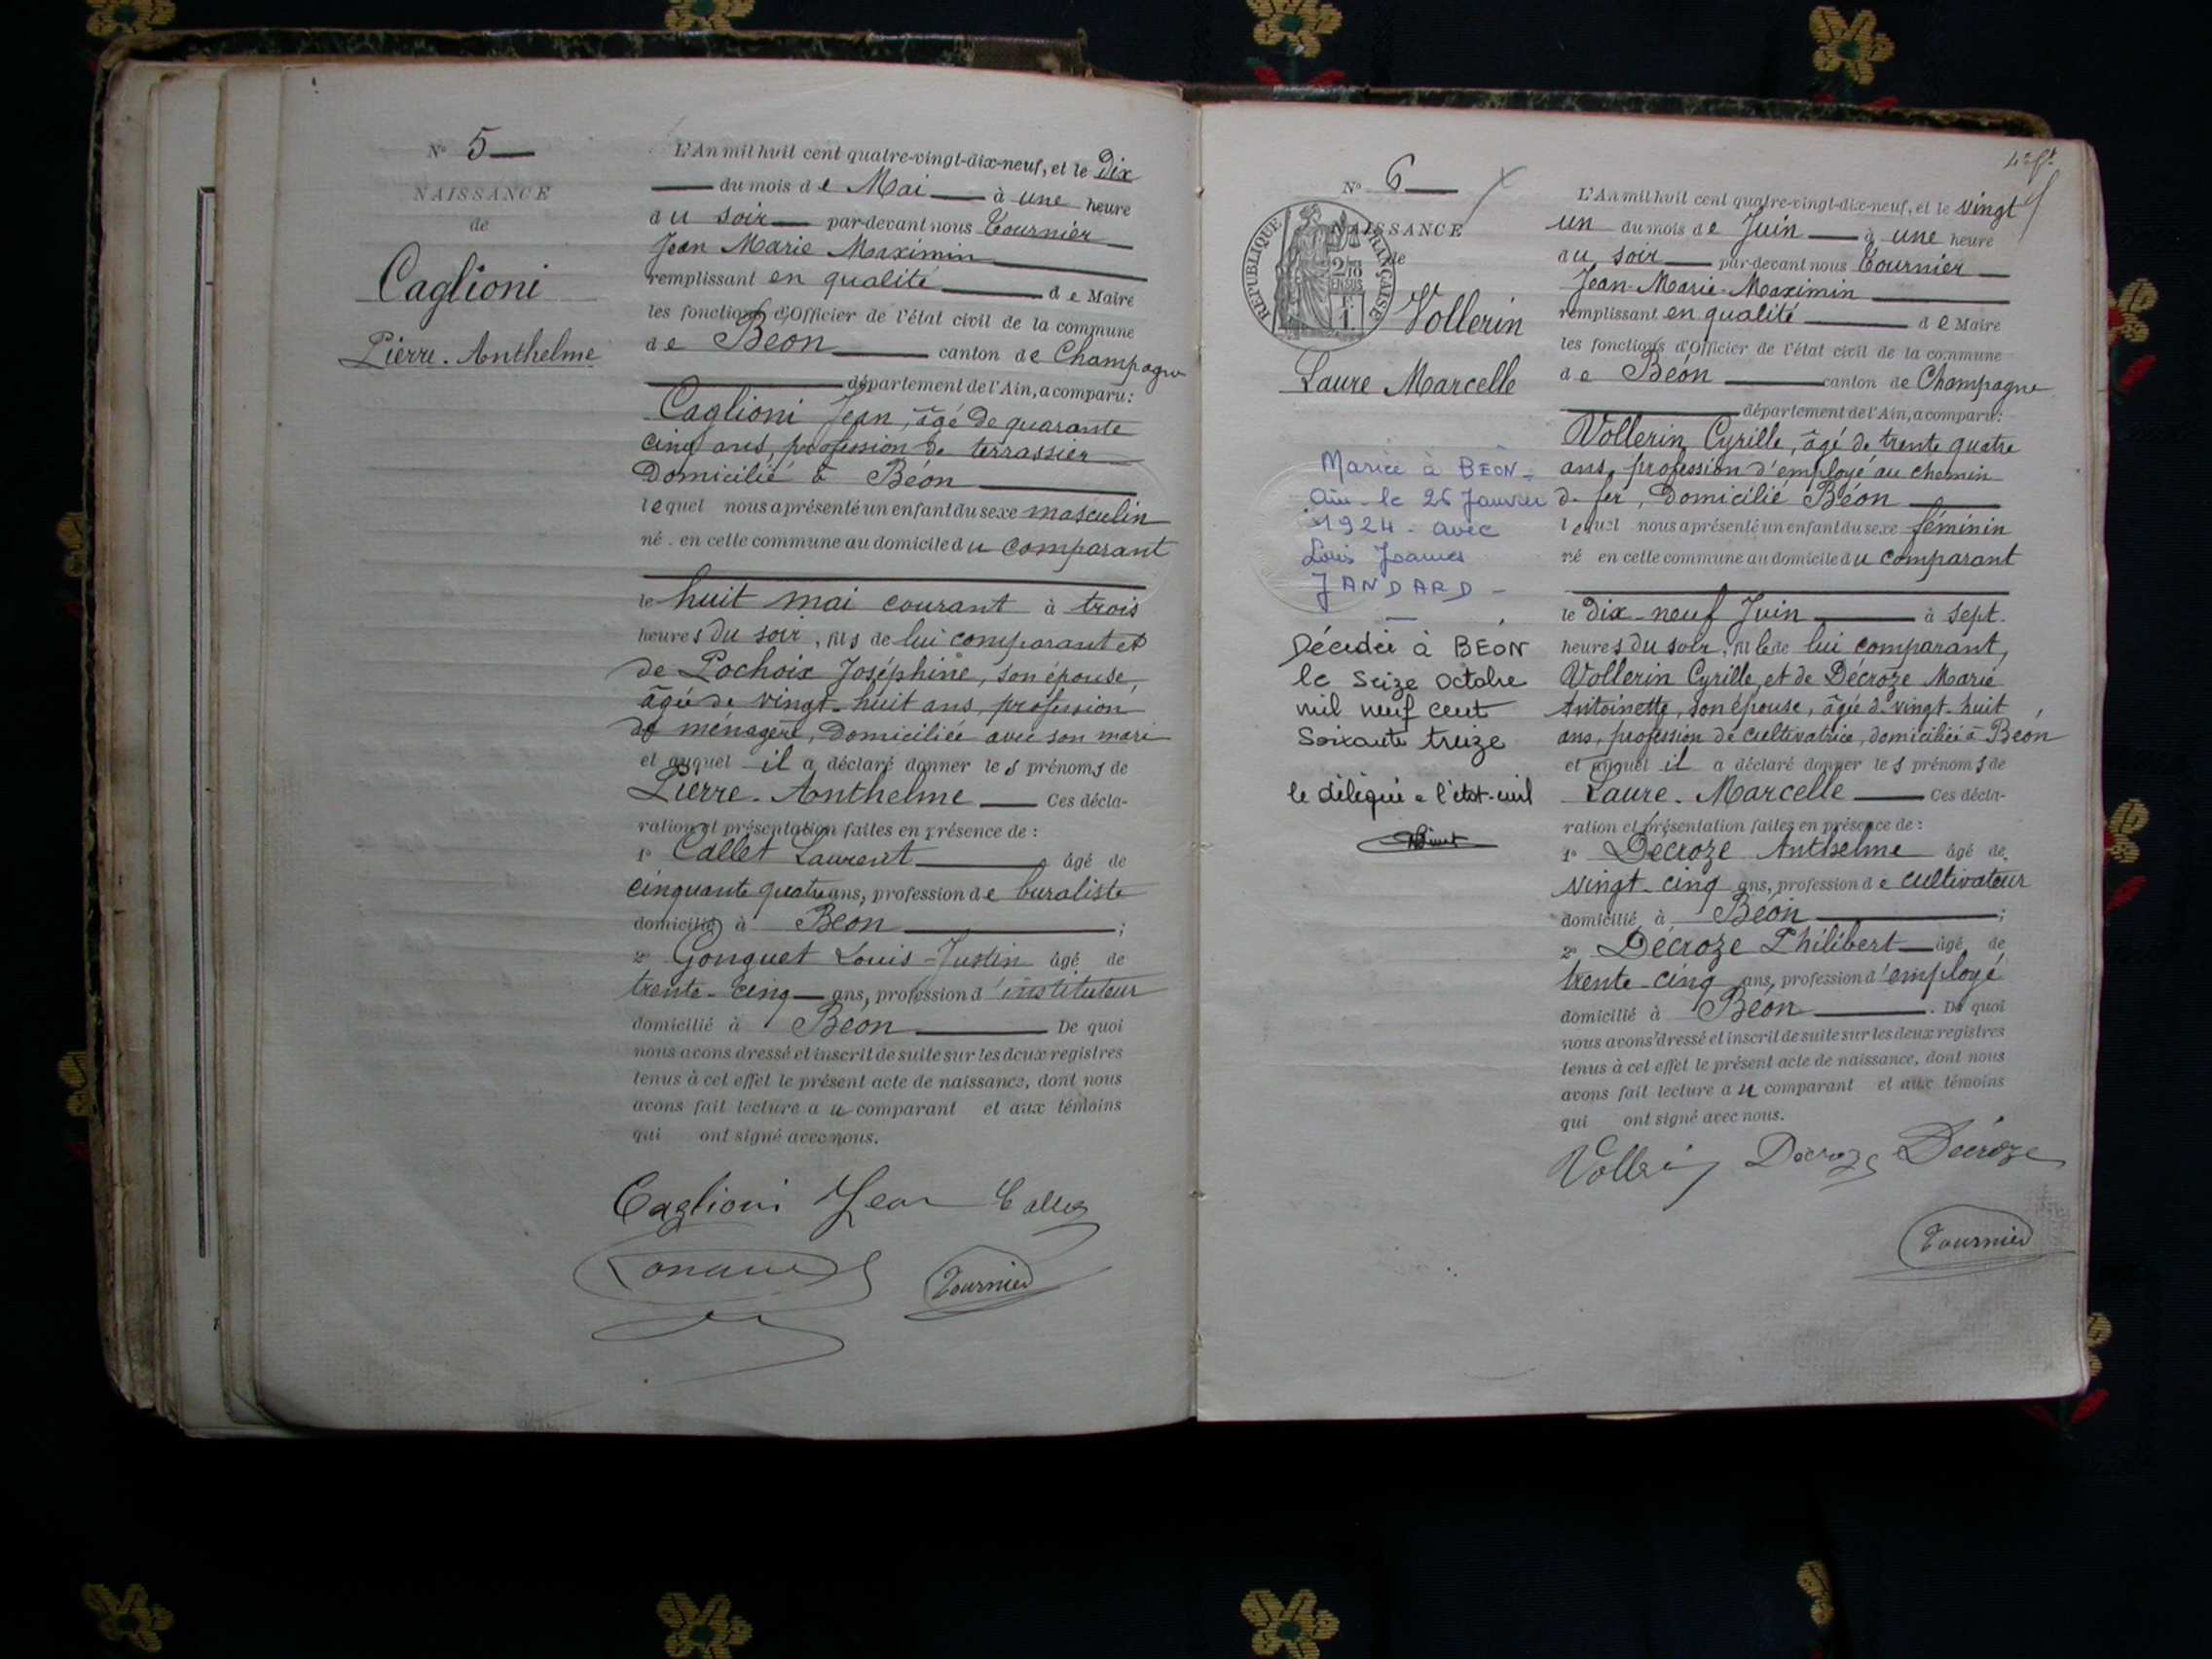 N° 5
NAISSANCE
de
Caglioni
Pierre-Anthelme
L'An mil huit cent quatre-vingt-dix-neuf, et le Dix
du mois de Mai à une heure
du soir par-devant nous Tournier
Jean Marie Maximin
remplissant en qualité de Maire
les fonctions d'Officier de l'état civil de la commune
de Béon canton de Champagne
département de l'Ain, a comparu:
Caglioni Jean, âgé de quarante
cinq ans, profession de terrassier
Domicilié à Béon
lequel nous a présenté un enfant du sexe masculin
né en cette commune au domicile du comparant
le huit mai courant à trois
heures du soir, fils de lui comparant et
de Pochoix Joséphine, son épouse,
âgée de vingt-huit ans, profession
de ménagère, Domiciliée avec son mari
et auquel il a déclaré donner les prénoms de
Pierre-Anthelme Ces décla-
ration et présentation faites en présence de :
1° Callet Laurent âgé de
cinquante quatre ans, profession de buraliste
domicilié à Béon ;
2° Gonguet Louis-Justin âgé de
trente-cinq ans, profession d'instituteur
domicilié à Béon De quoi
nous avons dressé et inscrit de suite sur les deux registres
tenus à cet effet le présent acte de naissance, dont nous
avons fait lecture au comparant et aux témoins
qui ont signé avec nous.
Caglioni Jean Callet
Tournier
N° 6
NAISSANCE
de
REPUBLIQUE FRANÇAISE
2/10
EN SUS
Vollerin
Laure Marcelle
Mariée à BÉON-
Ain-le 26 Janvier
1924-avec
Louis Joannes
JANDARD-
Décédée à BÉON
le Seize Octobre
mil neuf cent
Soixante treize
le délégué à l'état-civil
L'An mil huit cent quatre-vingt-dix-neuf, et le vingt
un du mois de Juin à une heure
du soir par-devant nous Tournier
Jean-Marie-Maximin
remplissant en qualité de Maire
les fonctions d'Officier de l'état civil de la commune
de Béon canton de Champagne
département de l'Ain, a comparu:
Vollerin Cyrille, âgé de trente quatre
ans, profession d'employé au chemin
de fer, Domicilié Béon
lequel nous a présenté un enfant du sexe féminin
né en cette commune au domicile du comparant
le Dix-neuf Juin à sept
heures du soir, fille de lui comparant,
Vollerin Cyrille, et de Décroze Marie
Antoinette, son épouse, âgée de vingt-huit
ans, profession de cultivatrice, domiciliée à Béon
et auquel il a déclaré donner les prénoms de
Laure-Marcelle Ces décla-
ration et présentation faites en présence de :
1° Décroze Anthelme âgé de
vingt-cinq ans, profession de cultivateur
domicilié à Béon ;
2° Décroze Philibert âgé de
trente-cinq ans, profession d'employé
domicilié à Béon. De quoi
nous avons dressé et inscrit de suite sur les deux registres
tenus à cet effet le présent acte de naissance, dont nous
avons fait lecture au comparant et aux témoins
qui ont signé avec nous.
Vollerin Decroze Décroze
Tournier